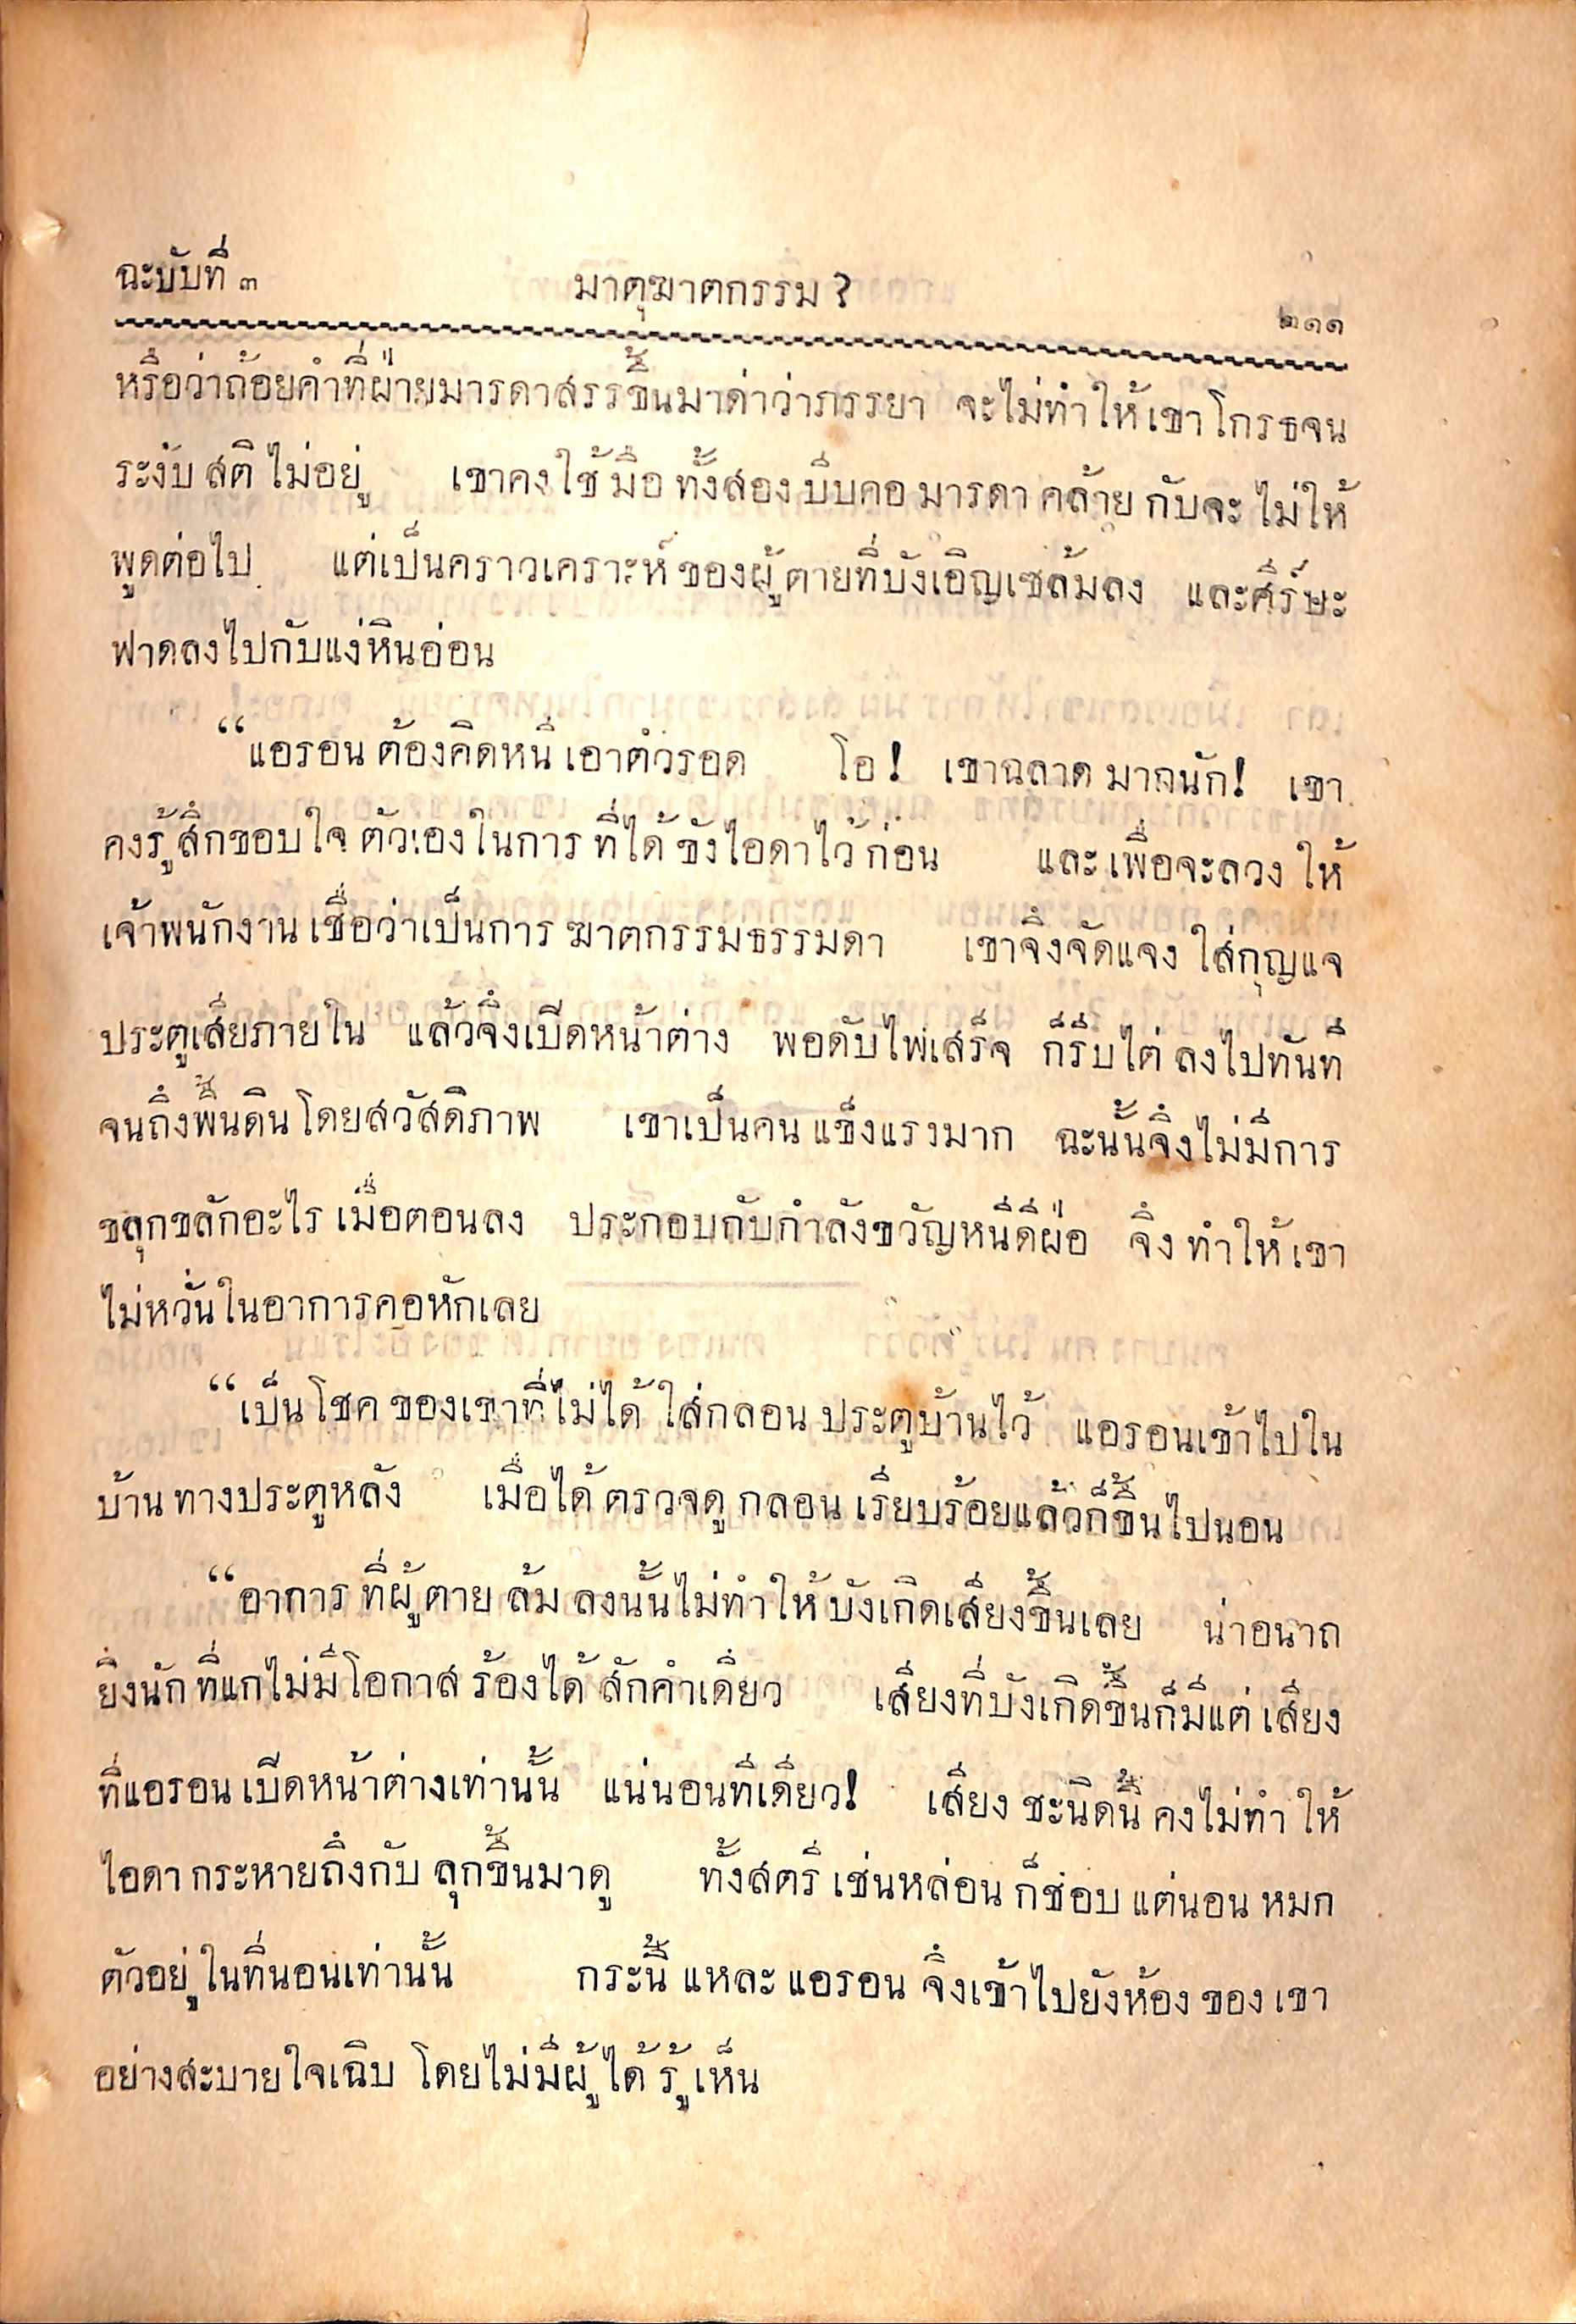 ฉะบับที่ ๓
มาตุฆาตกรรม ?
๒๑๑
หรือว่าถ้อยคำที่ฝ่ายมารดาสรรขึ้นมาด่าว่าภรรยา จะไม่ทำให้เขาโกรธจน
ระงับสติไม่อยู่ เขาคงใช้มือทั้งสองบีบคอมารดาคล้ายกับจะไม่ให้
พูดต่อไป แต่เป็นคราวเคราะห์ของผู้ตายที่บังเอิญเซล้มลง และศีร์ษะ
ฟาดลงไปกับแง่หินอ่อน
“แอรอนต้องคิดหนีเอาตัวรอด โอ! เขาฉลาดมากนัก! เขา
คงรู้สึกขอบใจตัวเองในการที่ได้ขังไอดาไว้ก่อน และเพื่อจะลวงให้
เจ้าพนักงานเชื่อว่าเป็นการฆาตกรรมธรรมดา เขาจึงจัดแจงใส่กุญแจ
ประตูเสียภายใน แล้วจึงเปิดหน้าต่าง พอดับไฟเสร็จ ก็รีบไต่ลงไปทันที
จนถึงพื้นดินโดยสวัสดิภาพ เขาเป็นคนแข็งแรงมาก ฉะนั้นจึงไม่มีการ
ขลุกขลักอะไรเมื่อตอนลง ประกอบกับกำลังขวัญหนีดีฝ่อ จึงทำให้เขา
ไม่หวั่นในอาการคอหักเลย
“เป็นโชคของเขาที่ไม่ได้ใส่กลอนประตูบ้านไว้ แอรอนเข้าไปใน
บ้านทางประตูหลัง เมื่อได้ตรวจดูกลอนเรียบร้อยแล้วก็ขึ้นไปนอน
“อาการที่ผู้ตายล้มลงนั้นไม่ทำให้บังเกิดเสียงขึ้นเลย น่าอนาถ
ยิ่งนักที่แกไม่มีโอกาสร้องได้สักคำเดียว เสียงที่บังเกิดขึ้นก็มีแต่เสียง
ที่แอรอนเปิดหน้าต่างเท่านั้น แน่นอนทีเดียว! เสียงชะนิดนี้คงไม่ทำให้
ไอดากระหายถึงกับลุกขึ้นมาดู ทั้งสตรีเช่นหล่อนก็ชอบแต่นอนหมก
ตัวอยู่ในที่นอนเท่านั้น กระนี้แหละแอรอนจึงเข้าไปยังห้องของเขา
อย่างสะบายใจเฉิบ โดยไม่มีผู้ได้รู้เห็น